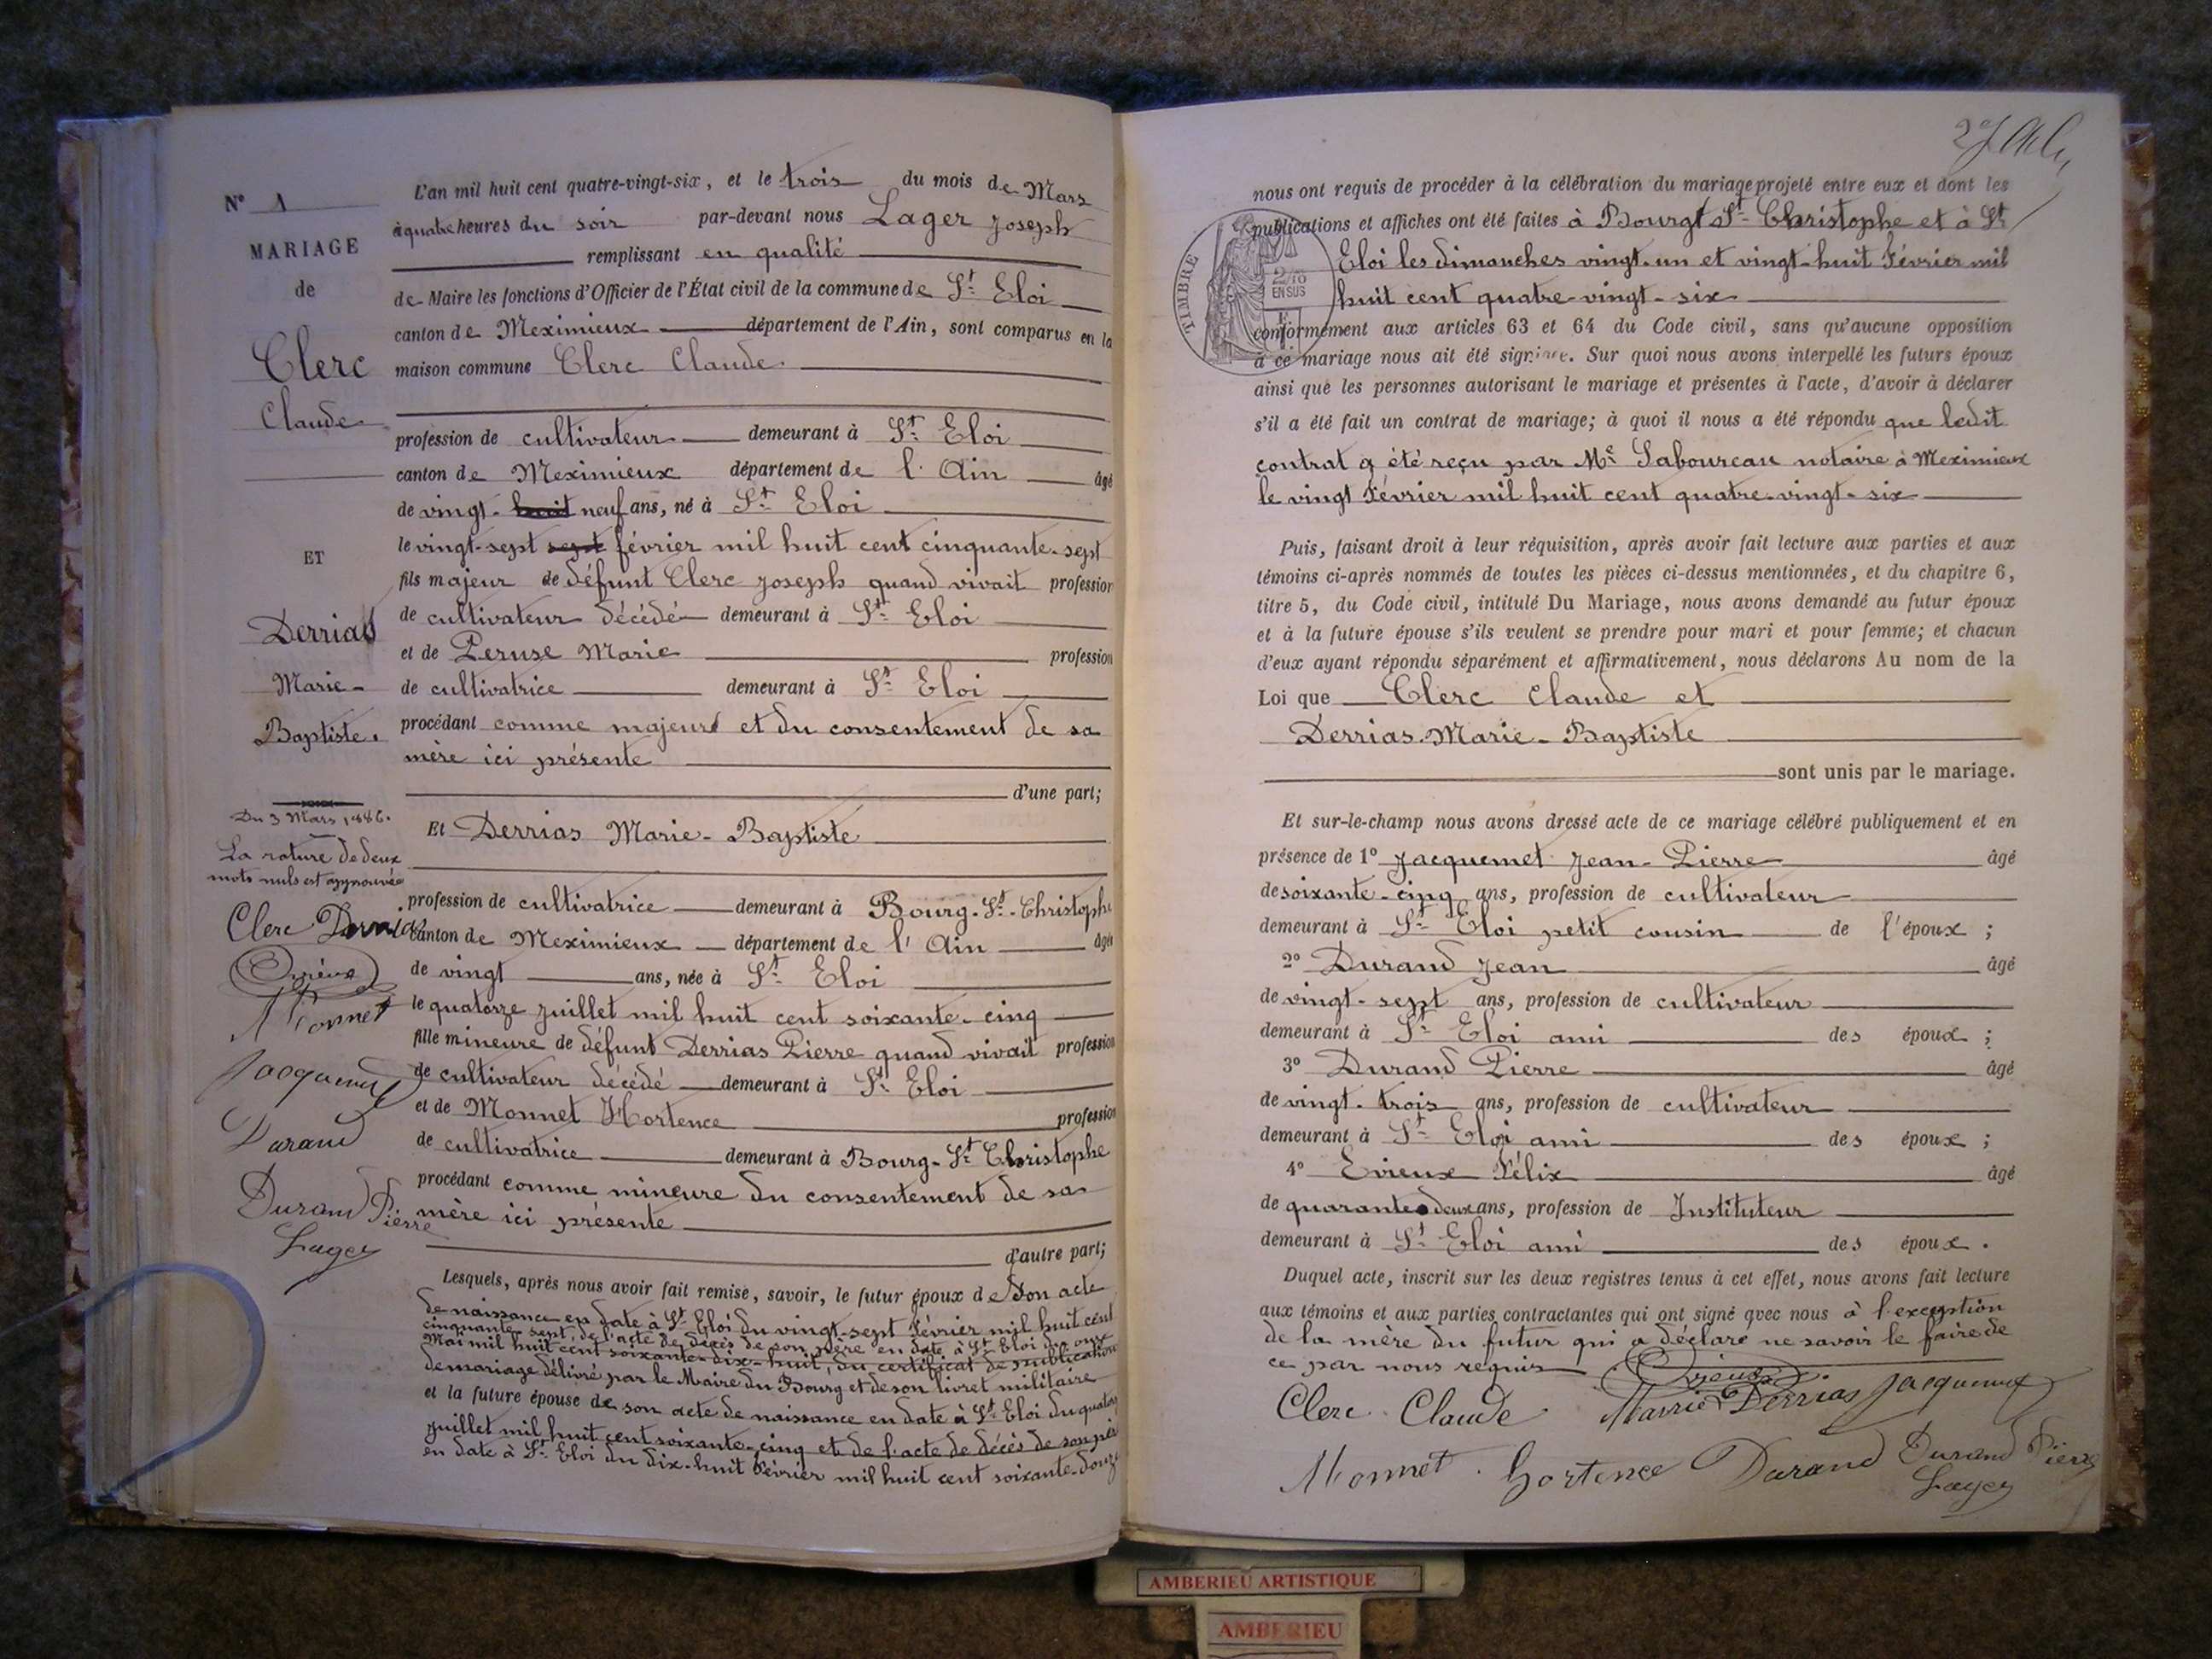 N° 1
MARIAGE
de
Clerc
Claude
ET
Derrias
Marie-
Baptiste.
Du 3 Mars 1886.
La rature de deux
mots nuls est approuvée
Clerc Derrias
Evieux
Monnet
Jacquemet
Durand
Durand Pierre
Lager
L'an mil huit cent quatre-vingt-six, et le trois du mois de Mars
à quatre heures du soir par-devant nous Lager Joseph
remplissant en qualité
de Maire les fonctions d'Officier de l'État civil de la commune de St Eloi
canton de Meximieux département de l'Ain, sont comparus en la
maison commune Clerc Claude
profession de cultivateur demeurant à St Eloi
canton de Meximieux département de l'Ain âgé
de vingt-huit neuf ans, né à St Eloi
le vingt-sept sept février mil huit cent cinquante-sept
fils majeur de défunt Clerc Joseph quand vivait profession
de cultivateur décédé demeurant à St Eloi
et de Peruse Marie profession
de cultivatrice demeurant à St Eloi
procédant comme majeur et du consentement de sa
mère ici présente
d'une part;
Et Derrias Marie-Baptiste
profession de cultivatrice demeurant à Bourg-St-Christophe
canton de Meximieux département de l'Ain âgée
de vingt ans, née à St Eloi
le quatorze juillet mil huit cent soixante-cinq
fille mineure de défunt Derrias Pierre quand vivait profession
de cultivateur décédé demeurant à St Eloi
et de Monnet Hortence profession
de cultivatrice demeurant à Bourg-St Christophe
procédant comme mineure du consentement de sa
mère ici présente
d'autre part;
Lesquels, après nous avoir fait remise, savoir, le futur époux de Son acte
de naissance en date à St Eloi du vingt-sept février mil huit cent
cinquante-sept, de l'acte de décès de son père en date à St Eloi du onze
Mai mil huit cent soixante-dix-huit, du certificat de publication
de mariage délivré par le Maire du Bourg et de son livret militaire
et la future épouse de son acte de naissance en date à St Eloi du quatorze
juillet mil huit cent soixante-cinq et de l'acte de décès de son père
en date à St Eloi du dix-huit février mil huit cent soixante-douze
nous ont requis de procéder à la célébration du mariage projeté entre eux et dont les
publications et affiches ont été faites à Bourg St-Christophe et à St
Eloi les dimanches vingt-un et vingt-huit Février mil
huit cent quatre-vingt-six
TIMBRE
2/10
EN SUS
conformément aux articles 63 et 64 du Code civil, sans qu'aucune opposition
à ce mariage nous ait été signifiée. Sur quoi nous avons interpellé les futurs époux
ainsi que les personnes autorisant le mariage et présentes à l'acte, d'avoir à déclarer
s'il a été fait un contrat de mariage; à quoi il nous a été répondu que ledit
contrat a été reçu par Me Laboureau notaire à Meximieux
le vingt Février mil huit cent quatre-vingt-six
Puis, faisant droit à leur réquisition, après avoir fait lecture aux parties et aux
témoins ci-après nommés de toutes les pièces ci-dessus mentionnées, et du chapitre 6,
titre 5, du Code civil, intitulé Du Mariage, nous avons demandé au futur époux
et à la future épouse s'ils veulent se prendre pour mari et pour femme; et chacun
d'eux ayant répondu séparément et affirmativement, nous déclarons Au nom de la
Loi que Clerc Claude et
Derrias Marie-Baptiste
sont unis par le mariage.
Et sur-le-champ nous avons dressé acte de ce mariage célébré publiquement et en
présence de 1° Jacquemet Jean-Pierre âgé
de soixante-cinq ans, profession de cultivateur
demeurant à St Eloi petit cousin de l'époux;
2° Durand Jean âgé
de vingt-sept ans, profession de cultivateur
demeurant à St Eloi ami des époux;
3° Durand Pierre âgé
de vingt-trois ans, profession de cultivateur
demeurant à St Eloi ami des époux;
4° Evieux Félix âgé
de quarante deux ans, profession de Instituteur
demeurant à St Eloi ami des époux.
Duquel acte, inscrit sur les deux registres tenus à cet effet, nous avons fait lecture
aux témoins et aux parties contractantes qui ont signé avec nous à l'exception
de la mère du futur qui a déclaré ne savoir le faire de
ce par nous requis Evieux
Clerc Claude Marie Derrias Jacquemet
Monnet Hortence Durand Durand Pierre
Lager
AMBERIEU ARTISTIQUE
AMBERIEU